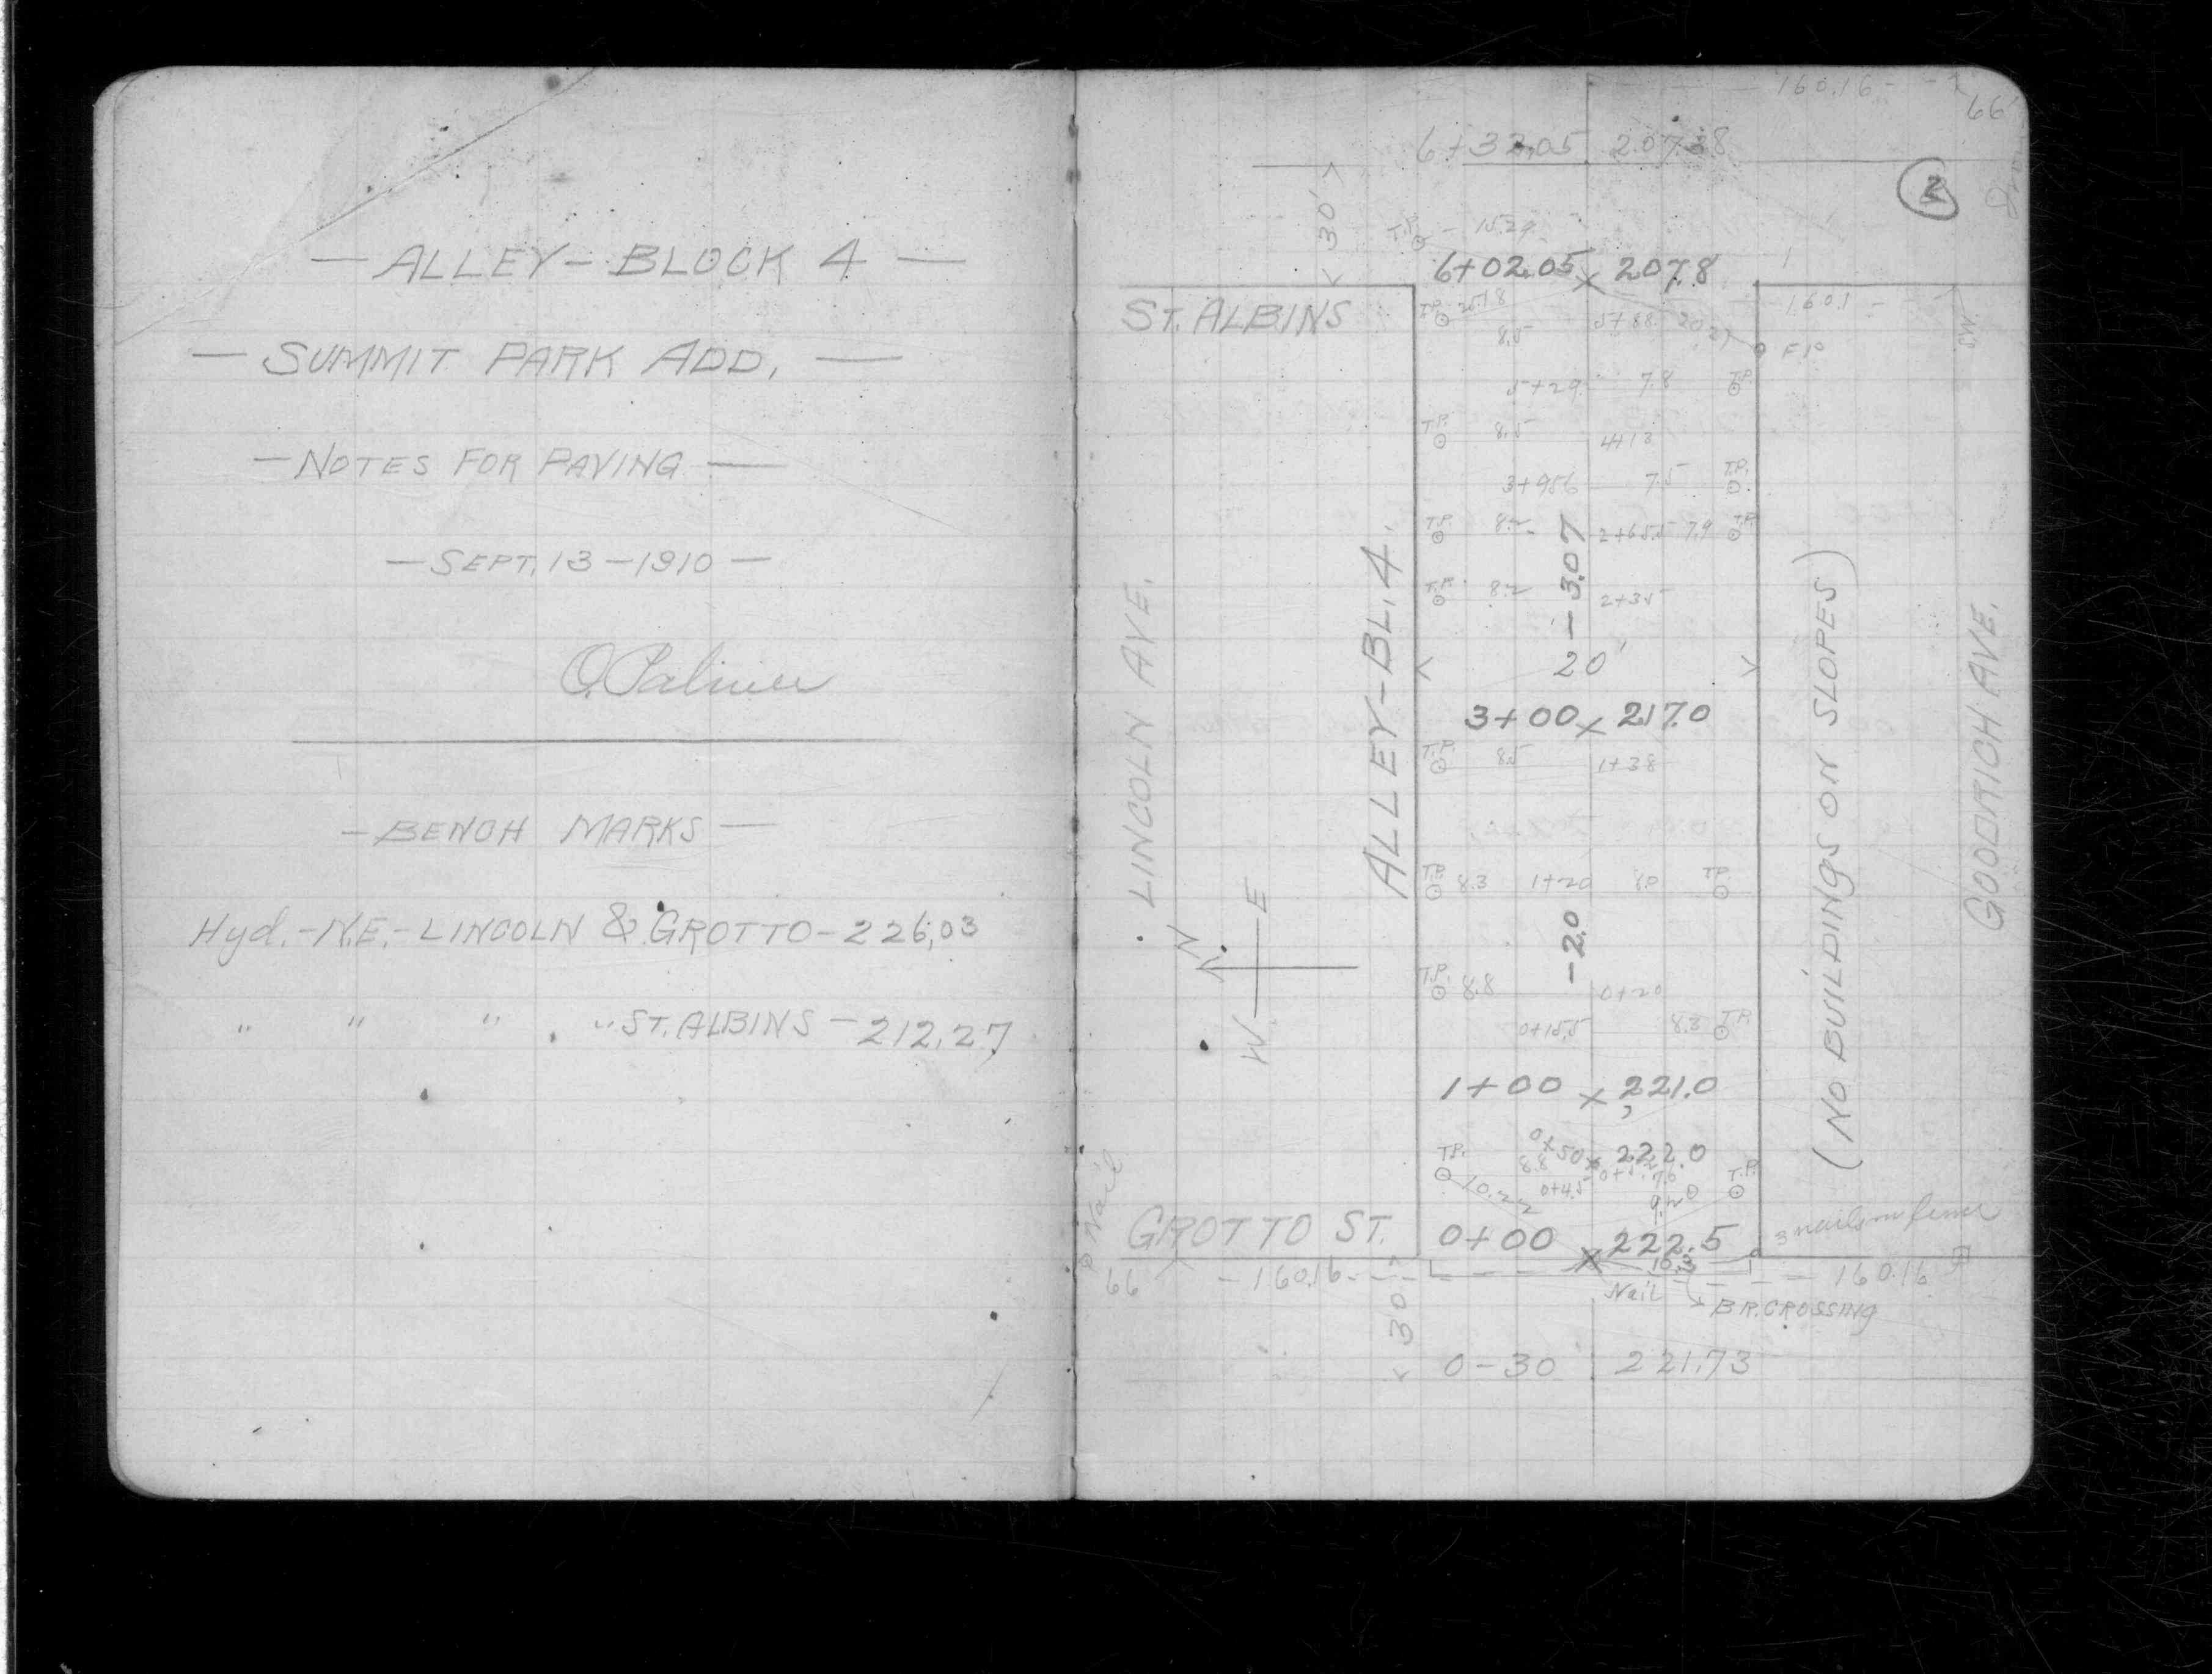 — ALLEY — BLOCK 4 —
— SUMMIT PARK ADD. —
— NOTES FOR PAVING —
— SEPT. 13 — 1910 —
O. Palmer
— BENCH MARKS —
Hyd. - N.E. - LINCOLN & GROTTO - 226.03
" " " " ST. ALBINS - 212.27
160.16
66
6+32.05 207.38
2
30'
T.P. - 15.29
6+02.05 x 207.8
ST. ALBINS
T.P. 25.18
160.1
8.5 5+88 20.27
S.W.
5+29 7.8 T.P.
T.P. 8.5 4+13
3+95.6 7.5 T.P.
T.P. 8.2 2+65.5 7.9 T.P.
- 3.07
T.P. 8.2 2+35
20'
3+00 x 217.0
T.P. 8.5 1+38
LINCOLN AVE.
ALLEY - BL. 4.
(NO BUILDINGS ON SLOPES)
GOODRICH AVE.
T.P. 8.3 1+20 8.0 T.P.
N
W E
- 2.0
T.P. 8.8 0+20
0+15.5 8.3 T.P.
1+00 x 221.0
0+50 x 222.0
T.P. 8.8 T.P.
10.22 0+4.5 9.2
Nail
GROTTO ST. 0+00 x 222.5 3 nails on fence
66 - 160.16 - 10.3 - 160.16
Nail
BR. CROSSING
30'
0-30 221.73